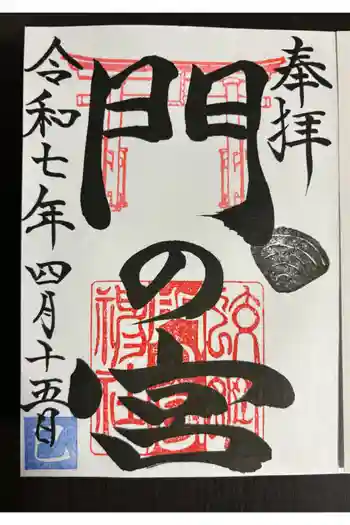 奉拝
門の宮
令和七年四月十五日